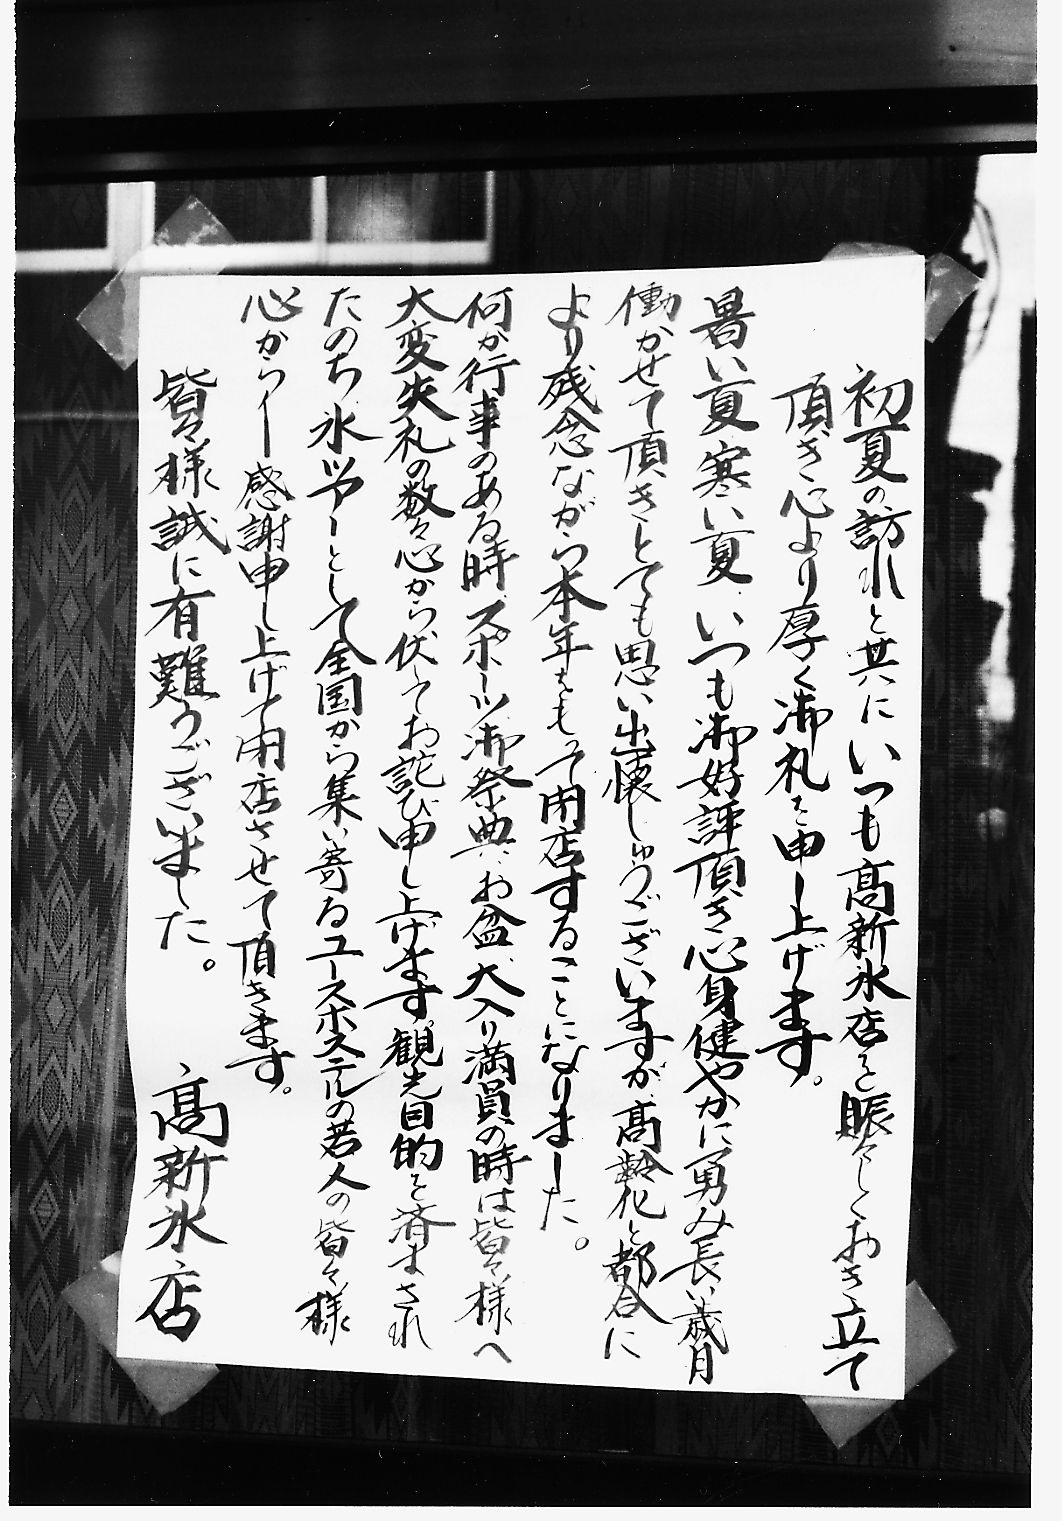 初夏の訪れと共にいつも髙新氷店を賑々しくわき立て
頂き心より厚く御礼を申し上げます。
暑い夏寒い夏いつも御好評頂き心身健やかに勇み長い歳月
働かせて頂きとても思い出懐しゅうございますが髙齢化と都合に
より残念ながら本年をもって閉店することになりました。
何か行事のある時スポーツ御祭典、お盆、大入り満員の時は皆々様へ
大変失礼の数々心から伏してお詫び申し上げます。観光目的を済まされ
たのち氷ツヤーとして全国から集い寄るユースホステルの若人の皆々様
心から感謝申し上げて閉店させて頂きます。
皆々様誠に有難うございました。
髙新氷店